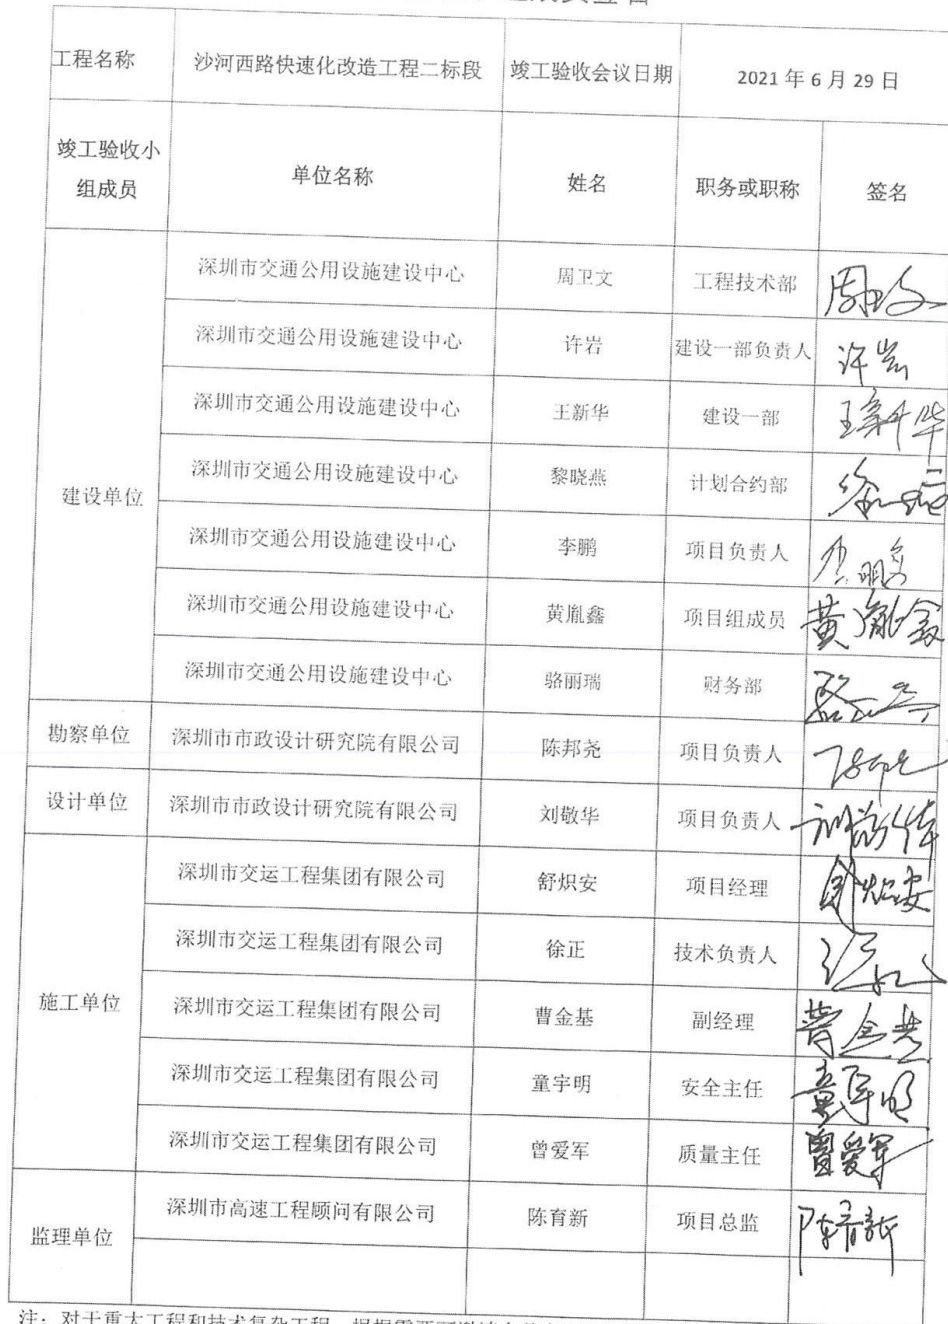 工程名称 沙河西路快速化改造工程二标段 竣工验收会议日期 2021 年 6 月 29 日
竣工验收小组成员 单位名称 姓名 职务或职称 签名
建设单位
深圳市交通公用设施建设中心 周卫文 工程技术部
深圳市交通公用设施建设中心 许岩 建设一部负责人 许岩
深圳市交通公用设施建设中心 王新华 建设一部 王新华
深圳市交通公用设施建设中心 黎晓燕 计划合约部
深圳市交通公用设施建设中心 李鹏 项目负责人
深圳市交通公用设施建设中心 黄胤鑫 项目组成员 黄胤鑫
深圳市交通公用设施建设中心 骆丽瑞 财务部
勘察单位 深圳市市政设计研究院有限公司 陈邦尧 项目负责人
设计单位 深圳市市政设计研究院有限公司 刘敬华 项目负责人
施工单位
深圳市交运工程集团有限公司 舒炽安 项目经理
深圳市交运工程集团有限公司 徐正 技术负责人
深圳市交运工程集团有限公司 曹金基 副经理 曹金基
深圳市交运工程集团有限公司 童宇明 安全主任 童宇明
深圳市交运工程集团有限公司 曾爱军 质量主任 曾爱军
监理单位
深圳市高速工程顾问有限公司 陈育新 项目总监 陈育新
注：对于重大工程和技术复杂工程，根据需要可邀请